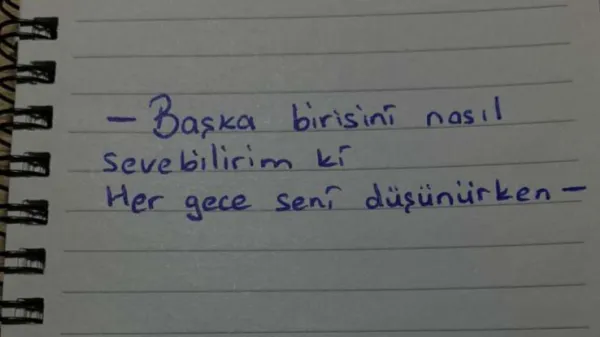 – Başka birisini nasıl
sevebilirim ki
Her gece seni düşünürken –